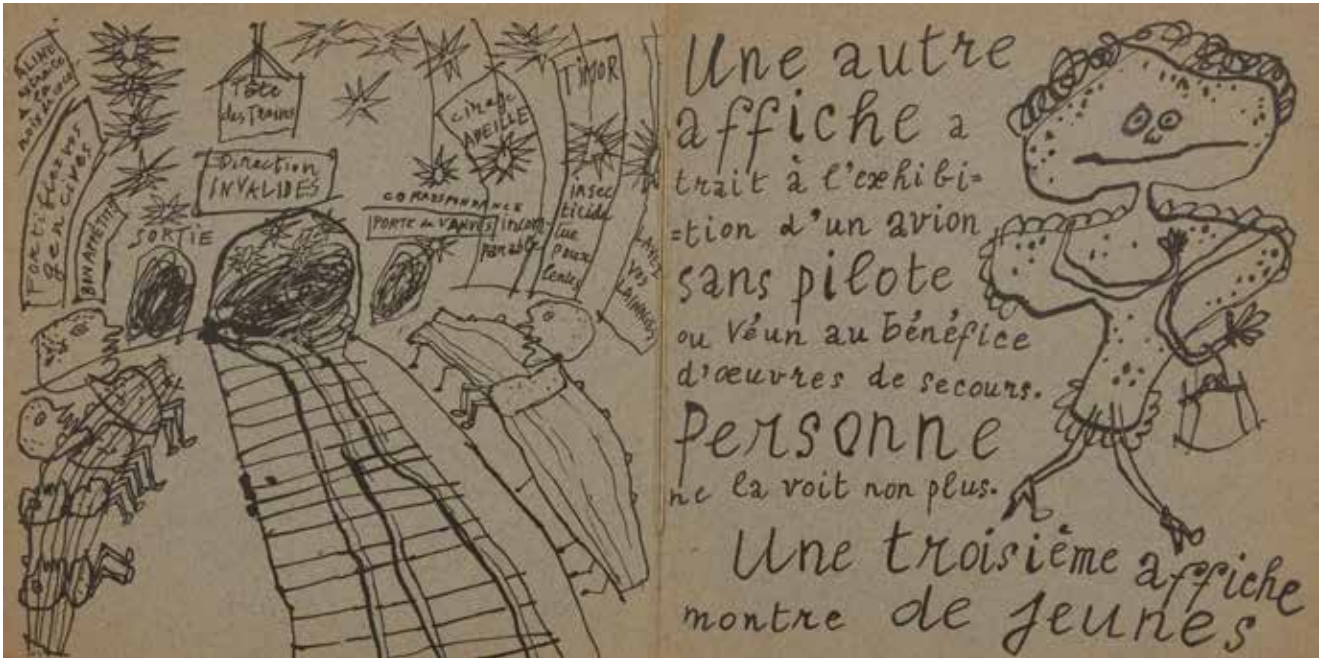 Fortifiez vos
gencives
BON APPÉTIT
SORTIE
Tête
des Trains
Direction
INVALIDES
CORRESPONDANCE
PORTE de VANVES
cirage
ABEILLE
incom-
parable
TIMOR
insec
ticide
tue
lentes
LAVEZ
VOS
LAINAGES
Une autre
affiche a
trait à l'exhibi=
=tion d'un avion
sans pilote
ou Véun au bénéfice
d'œuvres de secours.
Personne
ne la voit non plus.
Une troisième affiche
montre de jeunes